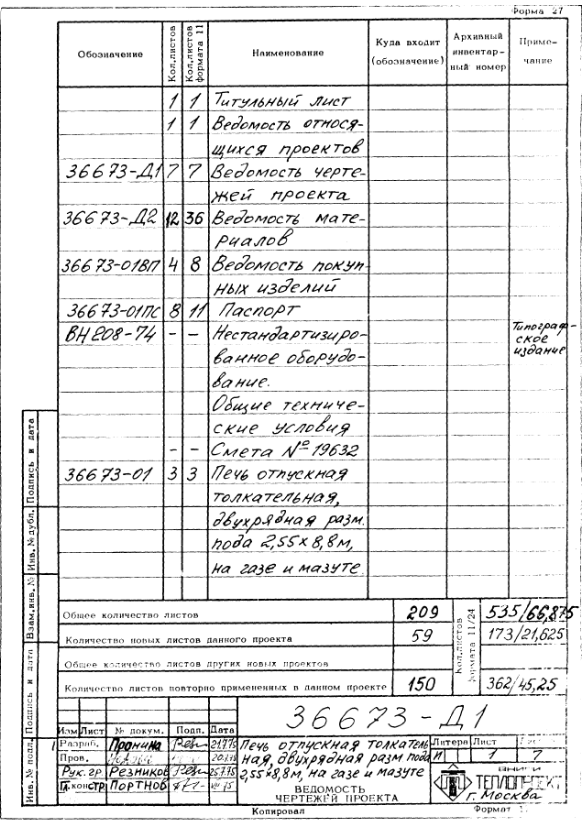 Форма 27
Обозначение Кол.листов Кол.листов формата 11 Наименование Куда входит (обозначение) Архивный инвентарный номер Приме-чание
1 1 Титульный лист
1 1 Ведомость относя-
щихся проектов
36673-Д1 7 7 Ведомость черте-
жей проекта
36673-Д2 12 36 Ведомость мате-
риалов
36673-01ВП 4 8 Ведомость покуп-
ных изделий
36673-01ПС 8 11 Паспорт
ВН208-74 - - Нестандартизиро- Типограф-
ванное оборудо- ское
вание. издание
Общие техниче-
ские условия
- - Смета № 19632
36673-01 3 3 Печь отпускная
толкательная,
двухрядная разм.
пода 2,55×8,8м,
на газе и мазуте.
Общее количество листов 209 535/66,875
Количество новых листов данного проекта 59 173/21,625
Общее количество листов других новых проектов
Количество листов повторно примененных в данном проекте 150 362/45,25
Кол.листов формата 11/24
36673-Д1
Изм Лист № докум. Подп. Дата
Разраб. Пронина
Пров.
Рук. гр Резников
Гл.констр Портноб
Печь отпускная толкатель-
ная, двухрядная разм пода
2,55×8,8м, на газе и мазуте
ВЕДОМОСТЬ
ЧЕРТЕЖЕЙ ПРОЕКТА
Литера Лист
И 1 7
ТЕПЛОПРОЕКТ
г. Москва
Копировал Формат
Инв. № подл. Подпись и дата Взам.инв. № Инв. № дубл. Подпись и дата